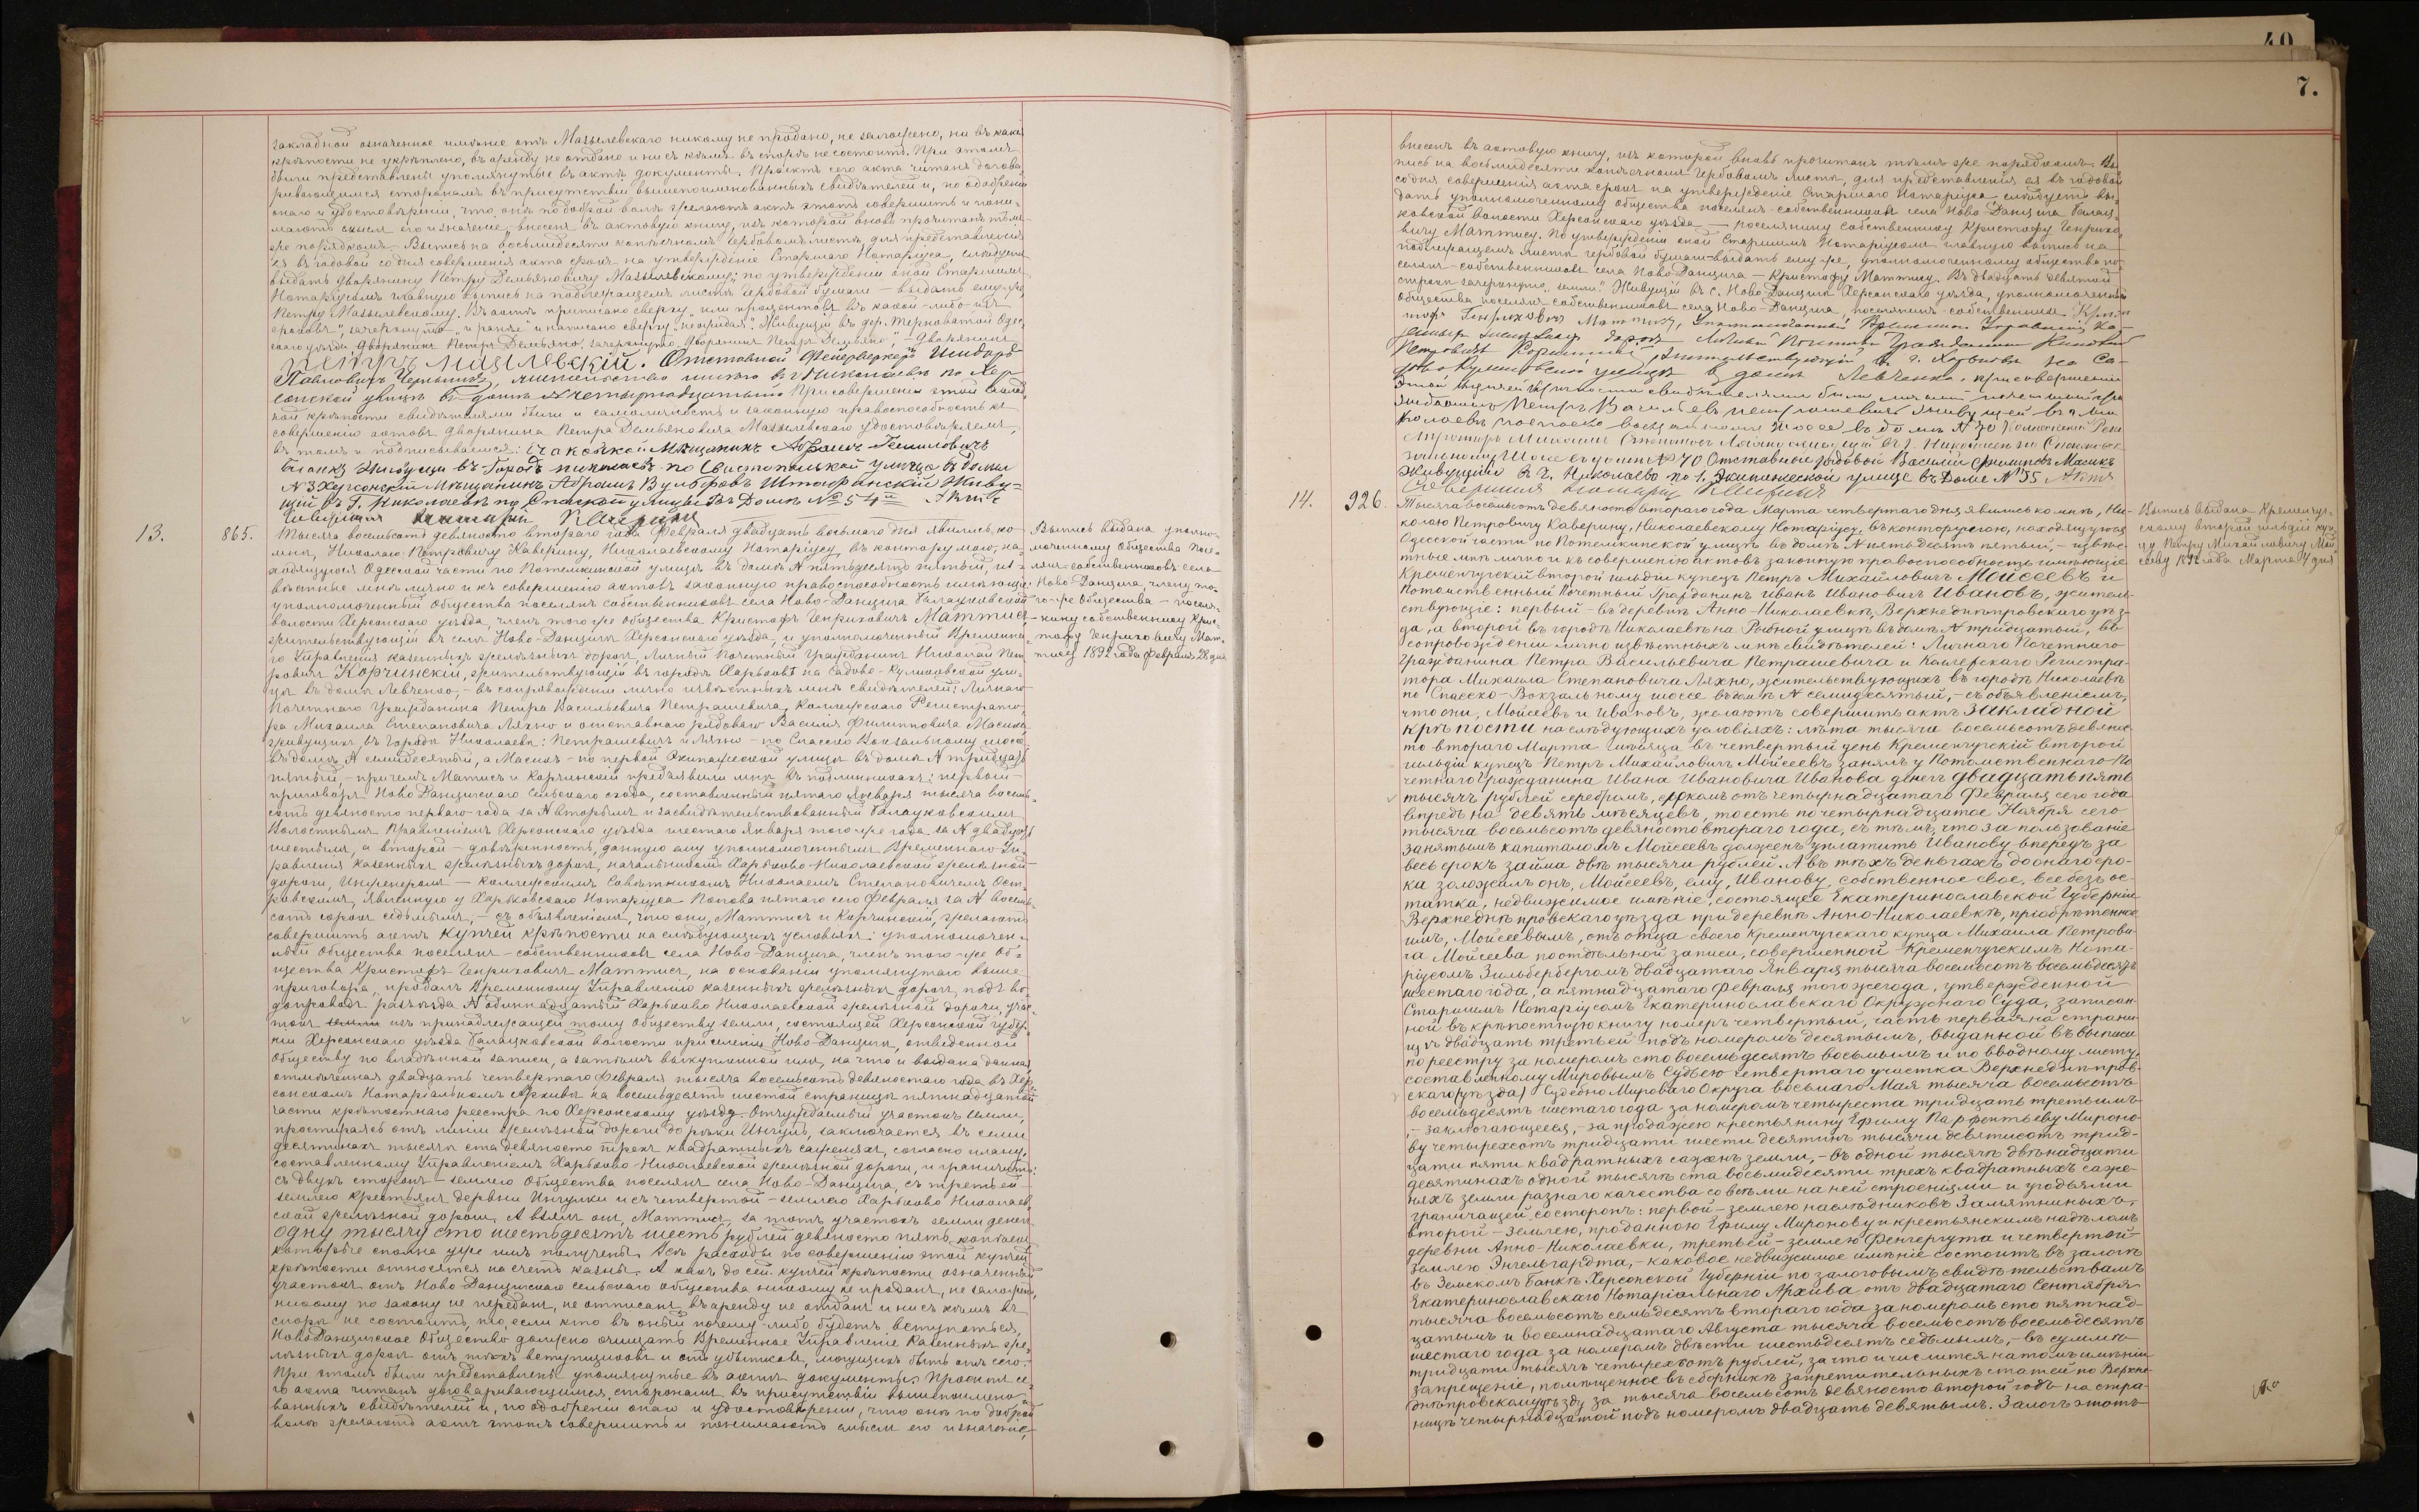 закладной означенное имѣніе отъ Мазылевскаго никому не продано, не заложено, ни въ какія
крѣпости не укрѣплено, въ аренду не отдано и ни съ кѣмъ въ спорѣ не состоитъ. При этомъ
были представлены упомянутые въ актѣ документы. Проектъ сего акта читанъ догова
ривающимся сторонамъ въ присутствіи вышепоименованныхъ свидѣтелей и, по одобреніи
онаго и удостовѣреніи, что они по доброй волѣ желаютъ актъ этотъ совершить и пони-
маютъ смыслъ его и значеніе внесенъ въ актовую книгу, изъ которой вновь прочитанъ тѣмъ
же порядкомъ. Выпись на восьмидесяти копѣечномъ гербовомъ листѣ, для представленія
ея въ годовой со дня совершенія акта срокъ на утвержденіе Старшаго Нотаріуса, слѣдуетъ
выдать дворянину Петру Демьяновичу Мазылевскому; по утвержденіи оной Старшимъ
Нотаріусомъ главную выпись на подлежащемъ листѣ гербовой бумаги — выдать ему-же,
Петру Мазылевскому. Въ актѣ приписано сверху „или процентовъ въ какой-либо изъ
сроковъ", зачеркнуто и написано сверху Живущій въ дер. Терноватой Одес-
скаго уѣзда Дворянинъ Петръ Демьяно, зачеркнуто „Дворянинъ Петръ Демьяно", — Дворянинъ
Петръ Мазылевскій. Отставной Фейерверкеръ Исидоръ
Павловичъ жительство имѣю въ г. Николаевѣ по Хер
сонской улицѣ въ домѣ № четырнадцатый При совершеніи этой заклад
ной крѣпости свидѣтелями были и самоличность и законную правоспособность къ
совершенію актовъ дворянина Петра Демьяновича Мазылевскаго удостовѣряемъ,
въ томъ и подписываемся: Очаковской Мѣщанинъ Абрамъ
Бланкъ Живущій въ Городѣ Николаевѣ по Севастопольской улицѣ въ домѣ
№ 3 Херсонскій Мѣщанинъ Абрамъ Вульфовъ Штофинскій Живу-
щій въ Г. Николаевѣ по Спаской улицѣ въ Домѣ № 54й Актъ
Совершилъ Нотаріусъ Каверинъ
13. 865. Тысяча восемьсотъ девяносто втораго года Февраля двадцать восьмаго дня явились ко
мнѣ, Николаю Петровичу Каверину, Николаевскому Нотаріусу, въ контору мою, на-
ходящуюся Одесской части по Потемкинской улицѣ въ домѣ № пятьдесятъ пятый, из-
вѣстные мнѣ лично и къ совершенію актовъ законную правоспособность имѣющіе
уполномоченный Общества поселянъ собственниковъ села Ново-Данцига Балацковской
волости Херсонскаго уѣзда, членъ того же общества Кристофъ Генриховичъ Маттисъ,
жительствующій въ селѣ Ново-Данцигѣ Херсонскаго уѣзда, и уполномоченный Временна-
го Управленія казенныхъ желѣзныхъ дорогъ, Личный Почетный Гражданинъ Николай Пет
ровичъ Корчинскій, жительствующій въ городѣ Харьковѣ на Садово-Куликовской ули-
цѣ въ домѣ Левченко, — въ сопровожденіи лично извѣстныхъ мнѣ свидѣтелей: Личнаго
Почетнаго Гражданина Петра Васильевича Петрашевича, Коллежскаго Регистрато-
ра Михаила Степановича Ляхно и отставнаго рядоваго Василія Филипповича Масика,
живущихъ въ городѣ Николаевѣ: Петрашевичъ и Ляхно — по Спасско Вокзальному шоссе
въ домѣ № семидесятый, а Масикъ — по первой Экипажеской улицѣ въ домѣ № тридцать
пятый, — причемъ Матисъ и Корчинскій предъявили мнѣ въ подлинникахъ: первый —
приговоръ Ново Данцигскаго сельскаго схода, составленный пятаго Января тысяча восемь-
сотъ девяносто перваго года за № вторымъ и засвидѣтельствованный Балацковскимъ
Волостнымъ Правленіемъ Херсонскаго уѣзда шестаго Января того же года за № двадцать
шестымъ, а второй — довѣренность, данную ему уполномоченнымъ Временнаго Уп-
равленія казенныхъ желѣзныхъ дорогъ, начальникомъ Харьково-Николаевской желѣзной
дороги, Инженеромъ — Коллежскимъ Совѣтникомъ Николаемъ Степановичемъ Ост-
ровскимъ, явленную у Харьковскаго Нотаріуса Попова пятаго сего Февраля за № восемь-
сотъ сорокъ седьмымъ, — съ объявленіемъ, что они, Маттисъ и Корчинскій, желаютъ
совершить актъ купчей крѣпости на слѣдующихъ условіяхъ: уполномочен-
ный Общества поселянъ-собственниковъ села Ново-Данцига, членъ того-же об-
щества Кристофъ Генриховичъ Маттисъ, на основаніи упомянутаго выше
приговора, продалъ Временному Управленію казенныхъ желѣзныхъ дорогъ, подъ во-
допроводъ разъѣзда № одиннадцатый Харьково Николаевской желѣзной дороги, учас-
токъ земли изъ принадлежащей тому Обществу земли, состоящей Херсонской губер-
ніи Херсонскаго уѣзда Балацковской волости при селеніи Ново-Данцигѣ, отведенной
Обществу по владѣнной записи, а затѣмъ выкупленной имъ, на что и выдана данная,
отмѣченная двадцать четвертаго Февраля тысяча восемьсотъ девяностаго года въ Хер
сонскомъ Нотаріальномъ Архивѣ на восемьдесятъ шестой страницѣ пятнадцатой
части крѣпостнаго реестра по Херсонскому уѣзду. Отчуждаемый участокъ земли,
простираясь отъ линіи желѣзной дороги до рѣки Ингулъ, заключается въ семи
десятинахъ тысячѣ ста девяносто трехъ квадратныхъ саженяхъ, согласно плану,
составленному Управленіемъ Харьково-Николаевской желѣзной дороги, и граничитъ:
съ двухъ сторонъ — землею Общества поселянъ села Ново-Данцига, съ третьей —
землею крестьянъ деревни Ингулки и съ четвертой — землею Харьково Николаев-
ской желѣзной дороги. А взялъ онъ, Маттисъ, за тотъ участокъ земли денегъ
одну тысячу сто шестьдесятъ шесть рублей девяносто пять копѣекъ,
которые сполна уже имъ получены. Всѣ расходы по совершенію этой купчей
крѣпости относятся на счетъ казны. А какъ до сей купчей крѣпости означенный
участокъ отъ Ново-Данцигскаго сельскаго общества никому не проданъ, не заложенъ,
никому по закону не переданъ, не отписанъ, въ аренду не отданъ и ни съ кѣмъ въ
спорѣ не состоитъ, то, если кто въ оный почему-либо будетъ вступаться,
Ново Данцигское Общество должно очищать Временное Управленіе Казенныхъ же-
лѣзныхъ дорогъ отъ тѣхъ вступщиковъ и отъ убытковъ, могущихъ быть отъ сего.
При этомъ были представлены упомянутые въ актѣ документы. Проектъ се-
го акта читанъ договаривающимся сторонамъ въ присутствіи вышепоимено-
ванныхъ свидѣтелей и, по одобреніи онаго и удостовѣреніи, что они по доброй
волѣ желаютъ актъ этотъ совершить и понимаютъ смыслъ его и значеніе,
Выпись выдана уполно-
моченному Общества посе-
лянъ-собственниковъ села
Ново Данцига, члену то-
го-же Общества — поселя-
нину собственнику Крис-
тофу Генриховичу Мат-
тису 1892 года Февраля 28 дня
40
7.
внесенъ въ актовую книгу, изъ которой вновь прочитанъ тѣмъ же порядкомъ. Вы
пись на восьмидесяти копѣечномъ гербовомъ листѣ, для представленія ея въ годовой
со дня совершенія акта срокъ на утвержденіе Старшаго Нотаріуса слѣдуетъ вы-
дать уполномоченному общества поселянъ-собственниковъ села Ново-Данцига Балац-
ковской волости Херсонскаго уѣзда — поселянину собственнику Кристофу Генрихо-
вичу Маттису. По утвержденіи оной Старшимъ Нотаріусомъ главную выпись на
подлежащемъ листѣ гербовой бумаги — выдать ему-же, уполномоченному общества по-
селянъ-собственниковъ села Ново-Данцига — Кристофу Маттису. Въ двадцать девятой
строкѣ зачеркнуто „земли". Живущій въ с. Ново-Данцигѣ Херсонскаго уѣзда, уполномоченный
Общества поселянъ собственниковъ села Ново-Данцига, поселянинъ собственникъ Крис-
тофъ Генриховъ Маттисъ, Уполномоченный Временнаго Управленія Ка-
зенныхъ дорогъ Личный Почетный Гражданинъ Николай
Петровичъ Корчинскій, жительствующій въ г. Харьковѣ на Са-
дово Куликовской улицѣ въ домѣ Левченко. При совершеніи
этой купчей крѣпости свидѣтелями были личный почетный гра
жданинъ Петръ Васильевъ Петрашевичъ живущій въ г. Ни
колаевѣ по Спаско Вокзальному шоссе въ домѣ № 70 Коллежскій Реги
страторъ Михаилъ Степановъ Ляхно живущій въ г. Николаевѣ по Спасско Вок
зальному Шоссе въ домѣ № 70 Отставный рядовой Василій Филиповъ Масикъ
Живущій въ Г. Николаевѣ по 1. Экипажеской улице въ Доме № 35 Актъ
Совершилъ Нотаріусъ Каверинъ
14. 926. Тысяча восемьсотъ девяносто втораго года Марта четвертаго дня явились ко мнѣ, Ни-
колаю Петровичу Каверину, Николаевскому Нотаріусу, въ контору мою, находящуюся
Одесской части по Потемкинской улицѣ въ домѣ № пятьдесятъ пятый, — извѣс-
тные мнѣ лично и къ совершенію актовъ законную правоспособность имѣющіе
Кременчугскій второй гильдіи купецъ Петръ Михайловичъ Мойсеевъ и
Потомственный Почетный Гражданинъ Иванъ Ивановичъ Ивановъ, житель-
ствующіе: первый — въ деревнѣ Анно-Николаевкѣ, Верхнеднѣпровскаго уѣз-
да, а второй въ городѣ Николаевѣ на Рыбной улицѣ въ домѣ № тридцатый, въ
сопровожденіи лично извѣстныхъ мнѣ свидѣтелей: Личнаго Почетнаго
Гражданина Петра Васильевича Петрашевича и Коллежскаго Регистра-
тора Михаила Степановича Ляхно, жительствующихъ въ городѣ Николаевѣ
по Спасско-Вокзальному шоссе въ домѣ № семидесятый, — съ объявленіемъ,
что они, Мойсеевъ и Ивановъ, желаютъ совершить актъ закладной
крѣпости на слѣдующихъ условіяхъ: лѣта тысяча восемьсотъ девянос-
то втораго Марта мѣсяца въ четвертый день Кременчугскій второй
гильдіи купецъ Петръ Михайловичъ Мойсеевъ занялъ у Потомственнаго По
четнаго Гражданина Ивана Ивановича Иванова денегъ двадцать пять
тысячъ рублей серебромъ, срокомъ отъ четырнадцатаго Февраля сего года
впредь на девять мѣсяцевъ, то есть по четырнадцатое Ноября сего
тысяча восемьсотъ девяносто втораго года, съ тѣмъ, что за пользованіе
занятымъ капиталомъ Мойсеевъ долженъ уплатить Иванову впередъ за
весь срокъ займа двѣ тысячи рублей. А въ тѣхъ деньгахъ до онаго сро-
ка заложилъ онъ, Мойсеевъ, ему, Иванову, собственное свое, все безъ ос-
татка, недвижимое имѣніе, состоящее Екатеринославской Губерніи
Верхнеднѣпровскаго уѣзда при деревнѣ Анно-Николаевкѣ, пріобрѣтенное
имъ, Мойсеевымъ, отъ отца своего Кременчугскаго купца Михаила Петрови-
ча Мойсеева по отдѣльной записи, совершенной Кременчугскимъ Нота-
ріусомъ Зильбербергомъ двадцатаго Января тысяча восемьсотъ восемьдесятъ
шестаго года, а пятнадцатаго Февраля того же года, утвержденной
Старшимъ Нотаріусомъ Екатеринославскаго Окружнаго Суда, записан-
ной въ крѣпостную книгу номеръ четвертый, часть первая на страни-
цѣ двадцать третьей подъ номеромъ десятымъ, выданной въ выписи
по реестру за номеромъ сто восемьдесятъ восьмымъ и по вводному листу,
составленному Мировымъ Судьею четвертаго участка Верхнеднѣпров-
скаго (уѣзда) Судебно Мироваго Округа восьмаго Мая тысяча восемьсотъ
восемьдесятъ шестаго года за номеромъ четыреста тридцать третьимъ
, — заключающееся, — за продажею крестьянину Ефиму Парфентьеву Мироно-
ву четырехсотъ тридцати шести десятинъ тысячи девятисотъ трид-
цати пяти квадратныхъ саженъ земли, — въ одной тысячѣ двѣнадцати
десятинахъ одной тысячѣ ста восьмидесяти трехъ квадратныхъ саже-
няхъ земли разнаго качества со всѣми на ней строеніями и угодьями
граничащей, съ сторонъ: первой — землею наслѣдниковъ Замятниныхъ,
второй — землею, проданною Ефиму Миронову и крестьянскимъ надѣломъ
деревни Анно-Николаевки, третьей — землею Фенгергута и четвертой —
землею Энгельгардта, — каковое недвижимое имѣніе состоитъ въ залогѣ
въ Земскомъ Банкѣ Херсонской Губерніи по залоговымъ свидѣтельствамъ
Екатеринославскаго Нотаріальнаго Архива, отъ двадцатаго Сентября
тысяча восемьсотъ семьдесятъ втораго года за номеромъ сто пятнад-
цатымъ и восемнадцатаго Августа тысяча восемьсотъ восемьдесятъ
шестаго года за номеромъ двѣсти шестьдесятъ седьмымъ, — въ суммѣ
тридцати тысячъ четырехсотъ рублей, за что и числится на томъ имѣніи
запрещеніе, помѣщенное въ сборникѣ запретительныхъ статей по Верхне-
днѣпровскому уѣзду за тысяча восемьсотъ девяносто второй годъ на стра-
ницѣ четырнадцатой подъ номеромъ двадцать девятымъ. Залогъ этотъ
Выпись выдана Кременчуг-
скому второй гильдіи куп-
цу Петру Михайловичу Мой-
сееву 1892 года Марта 4 дня